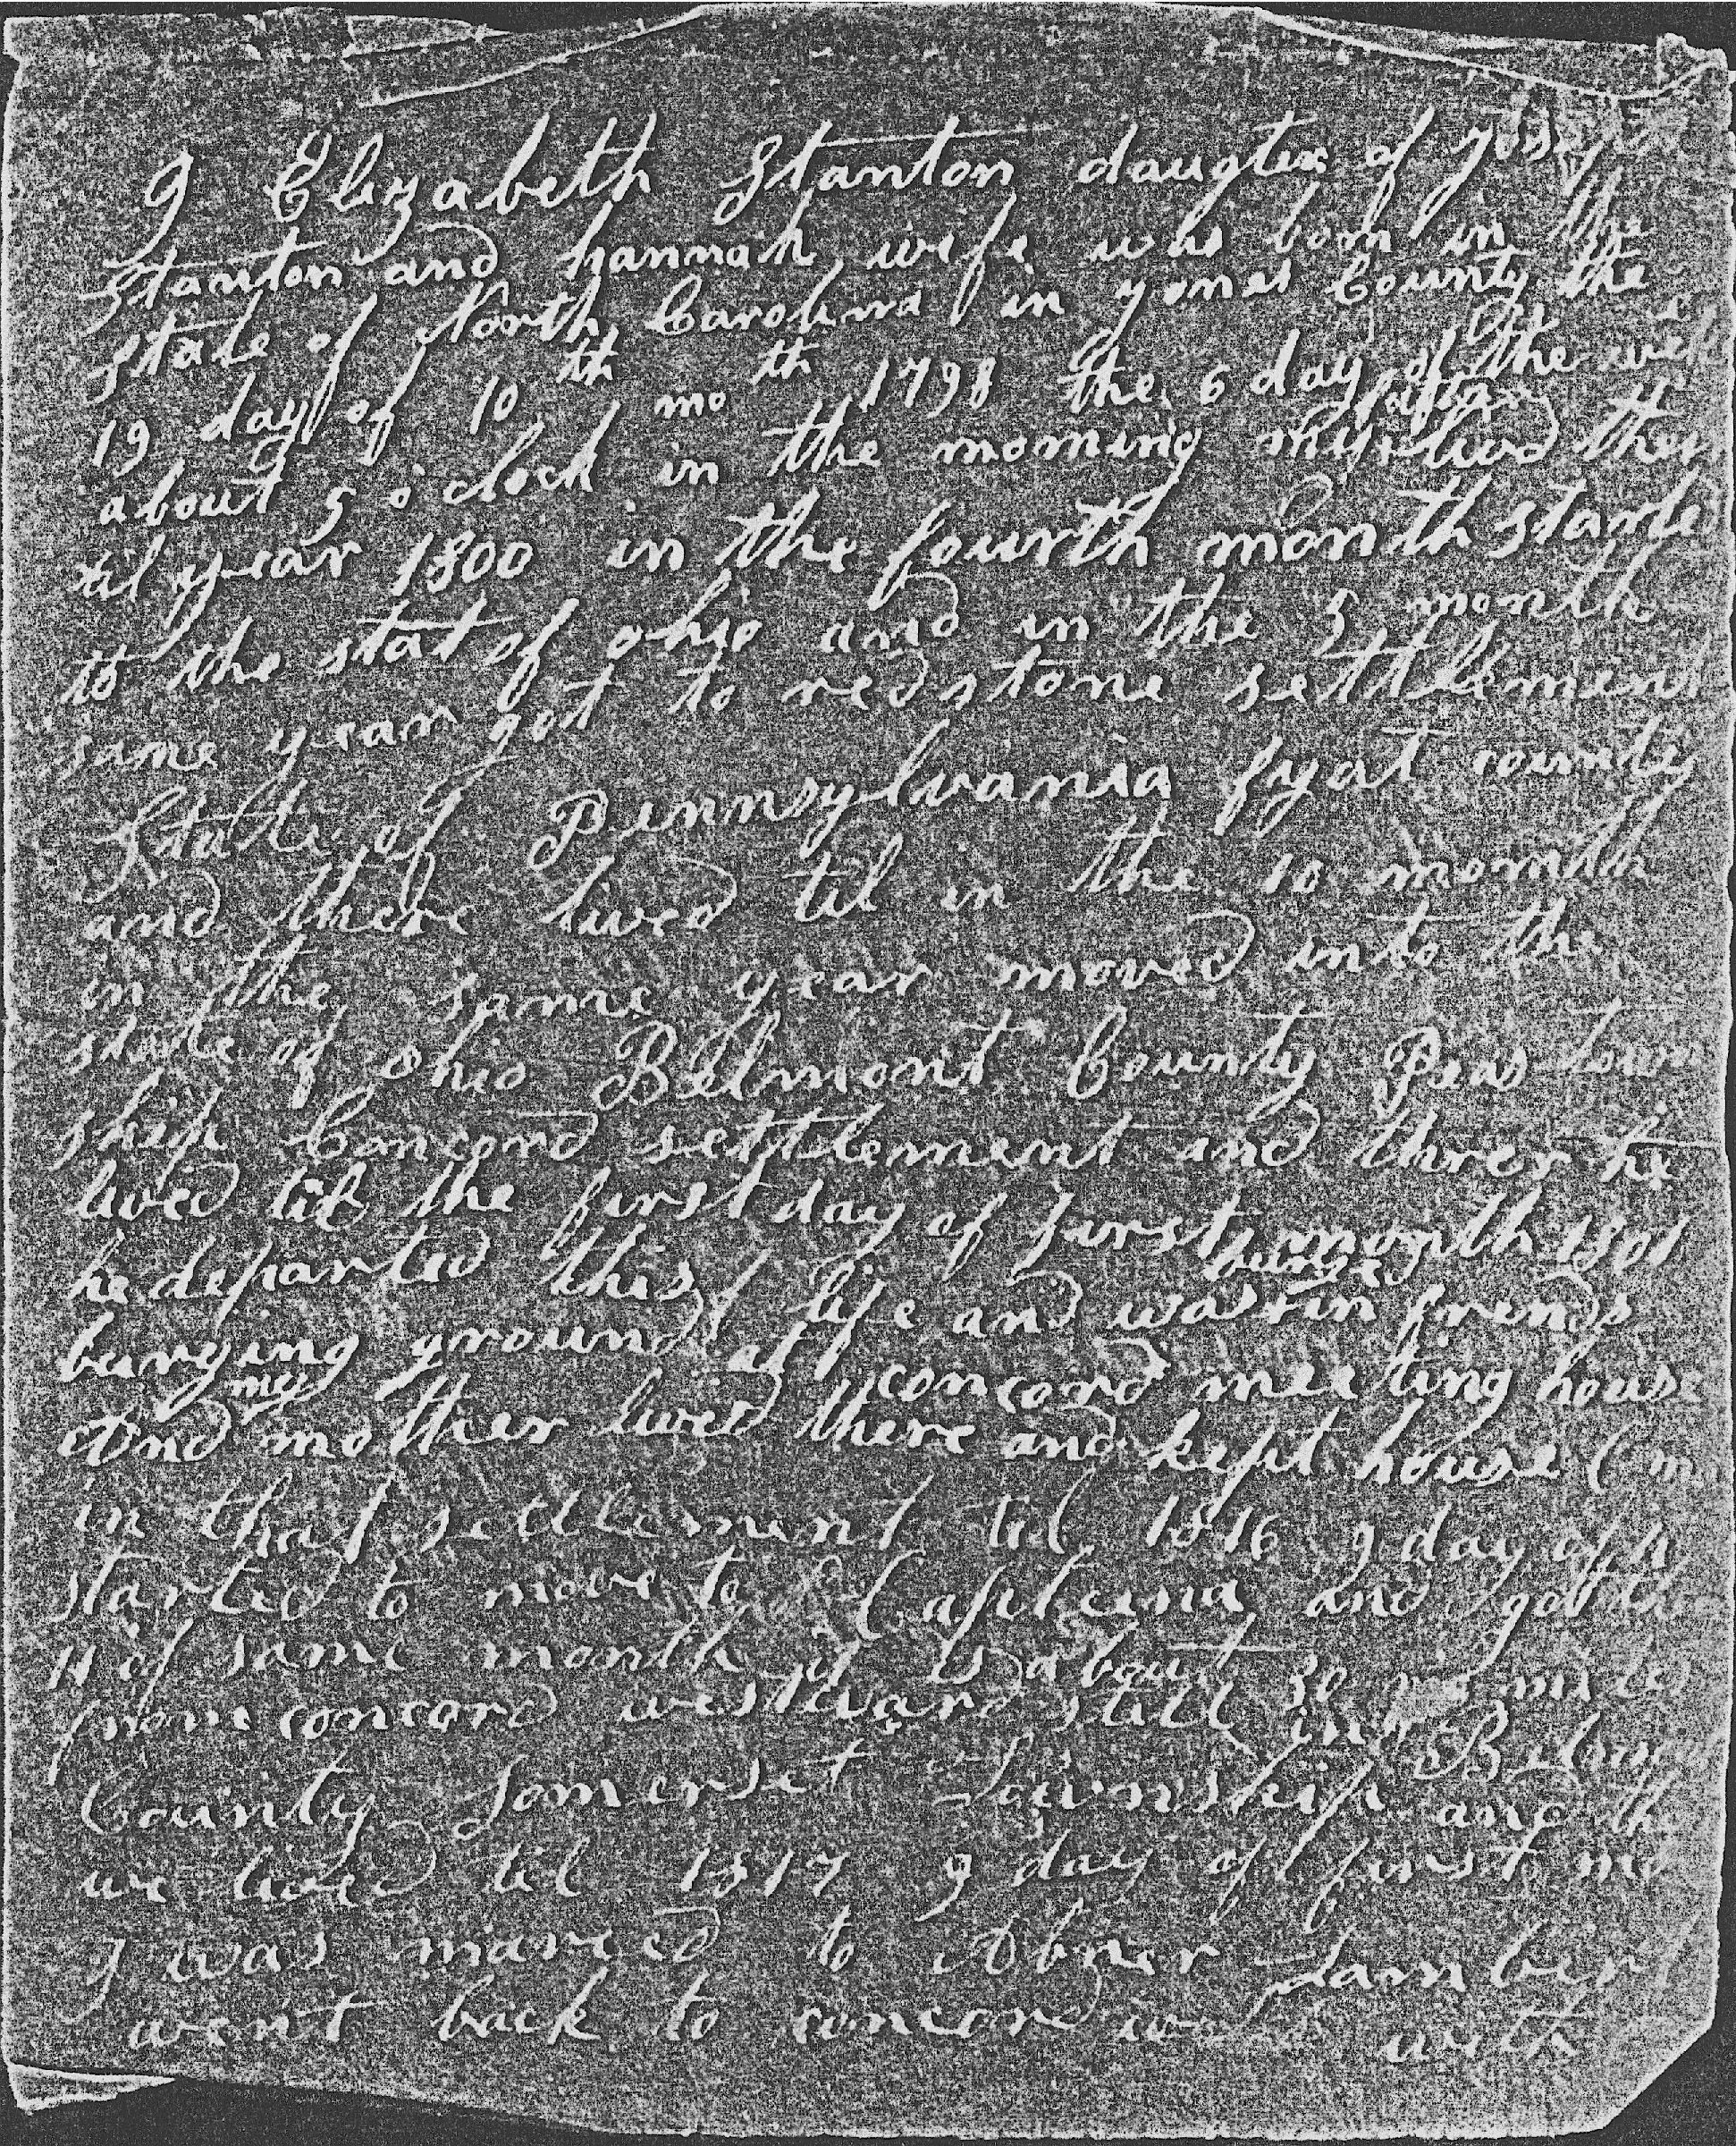 I Elizabeth Stanton daugter of
Stanton and hannah wife was born in the
state of North Carolina in Jones County the
19 day of 10th mo th 1798 the 6 day of the
about 5 o clock in the morning my lived
til year 1800 in the fourth month
to the stat of ohio and in the 5 month
same year got to redstone settlement
State of Pennsylvania fyat county
and there lived til in the 10 month
in the same year moved into the
state of ohio Belmont County Peas town
ship Concord settlement and
lived til the first day of first month 1801
he departed this life and was in frends
burying ground at concord meeting hous
And my mother lived there and kept house
in that settlement til 1816 9 day of
started to move to Capteena and got
11 of same month it is about 30 miles
from concord westward still in
County Somerset Township and
we lived til 1817 9 day of first mo
I was maried to Abner
went back to concord